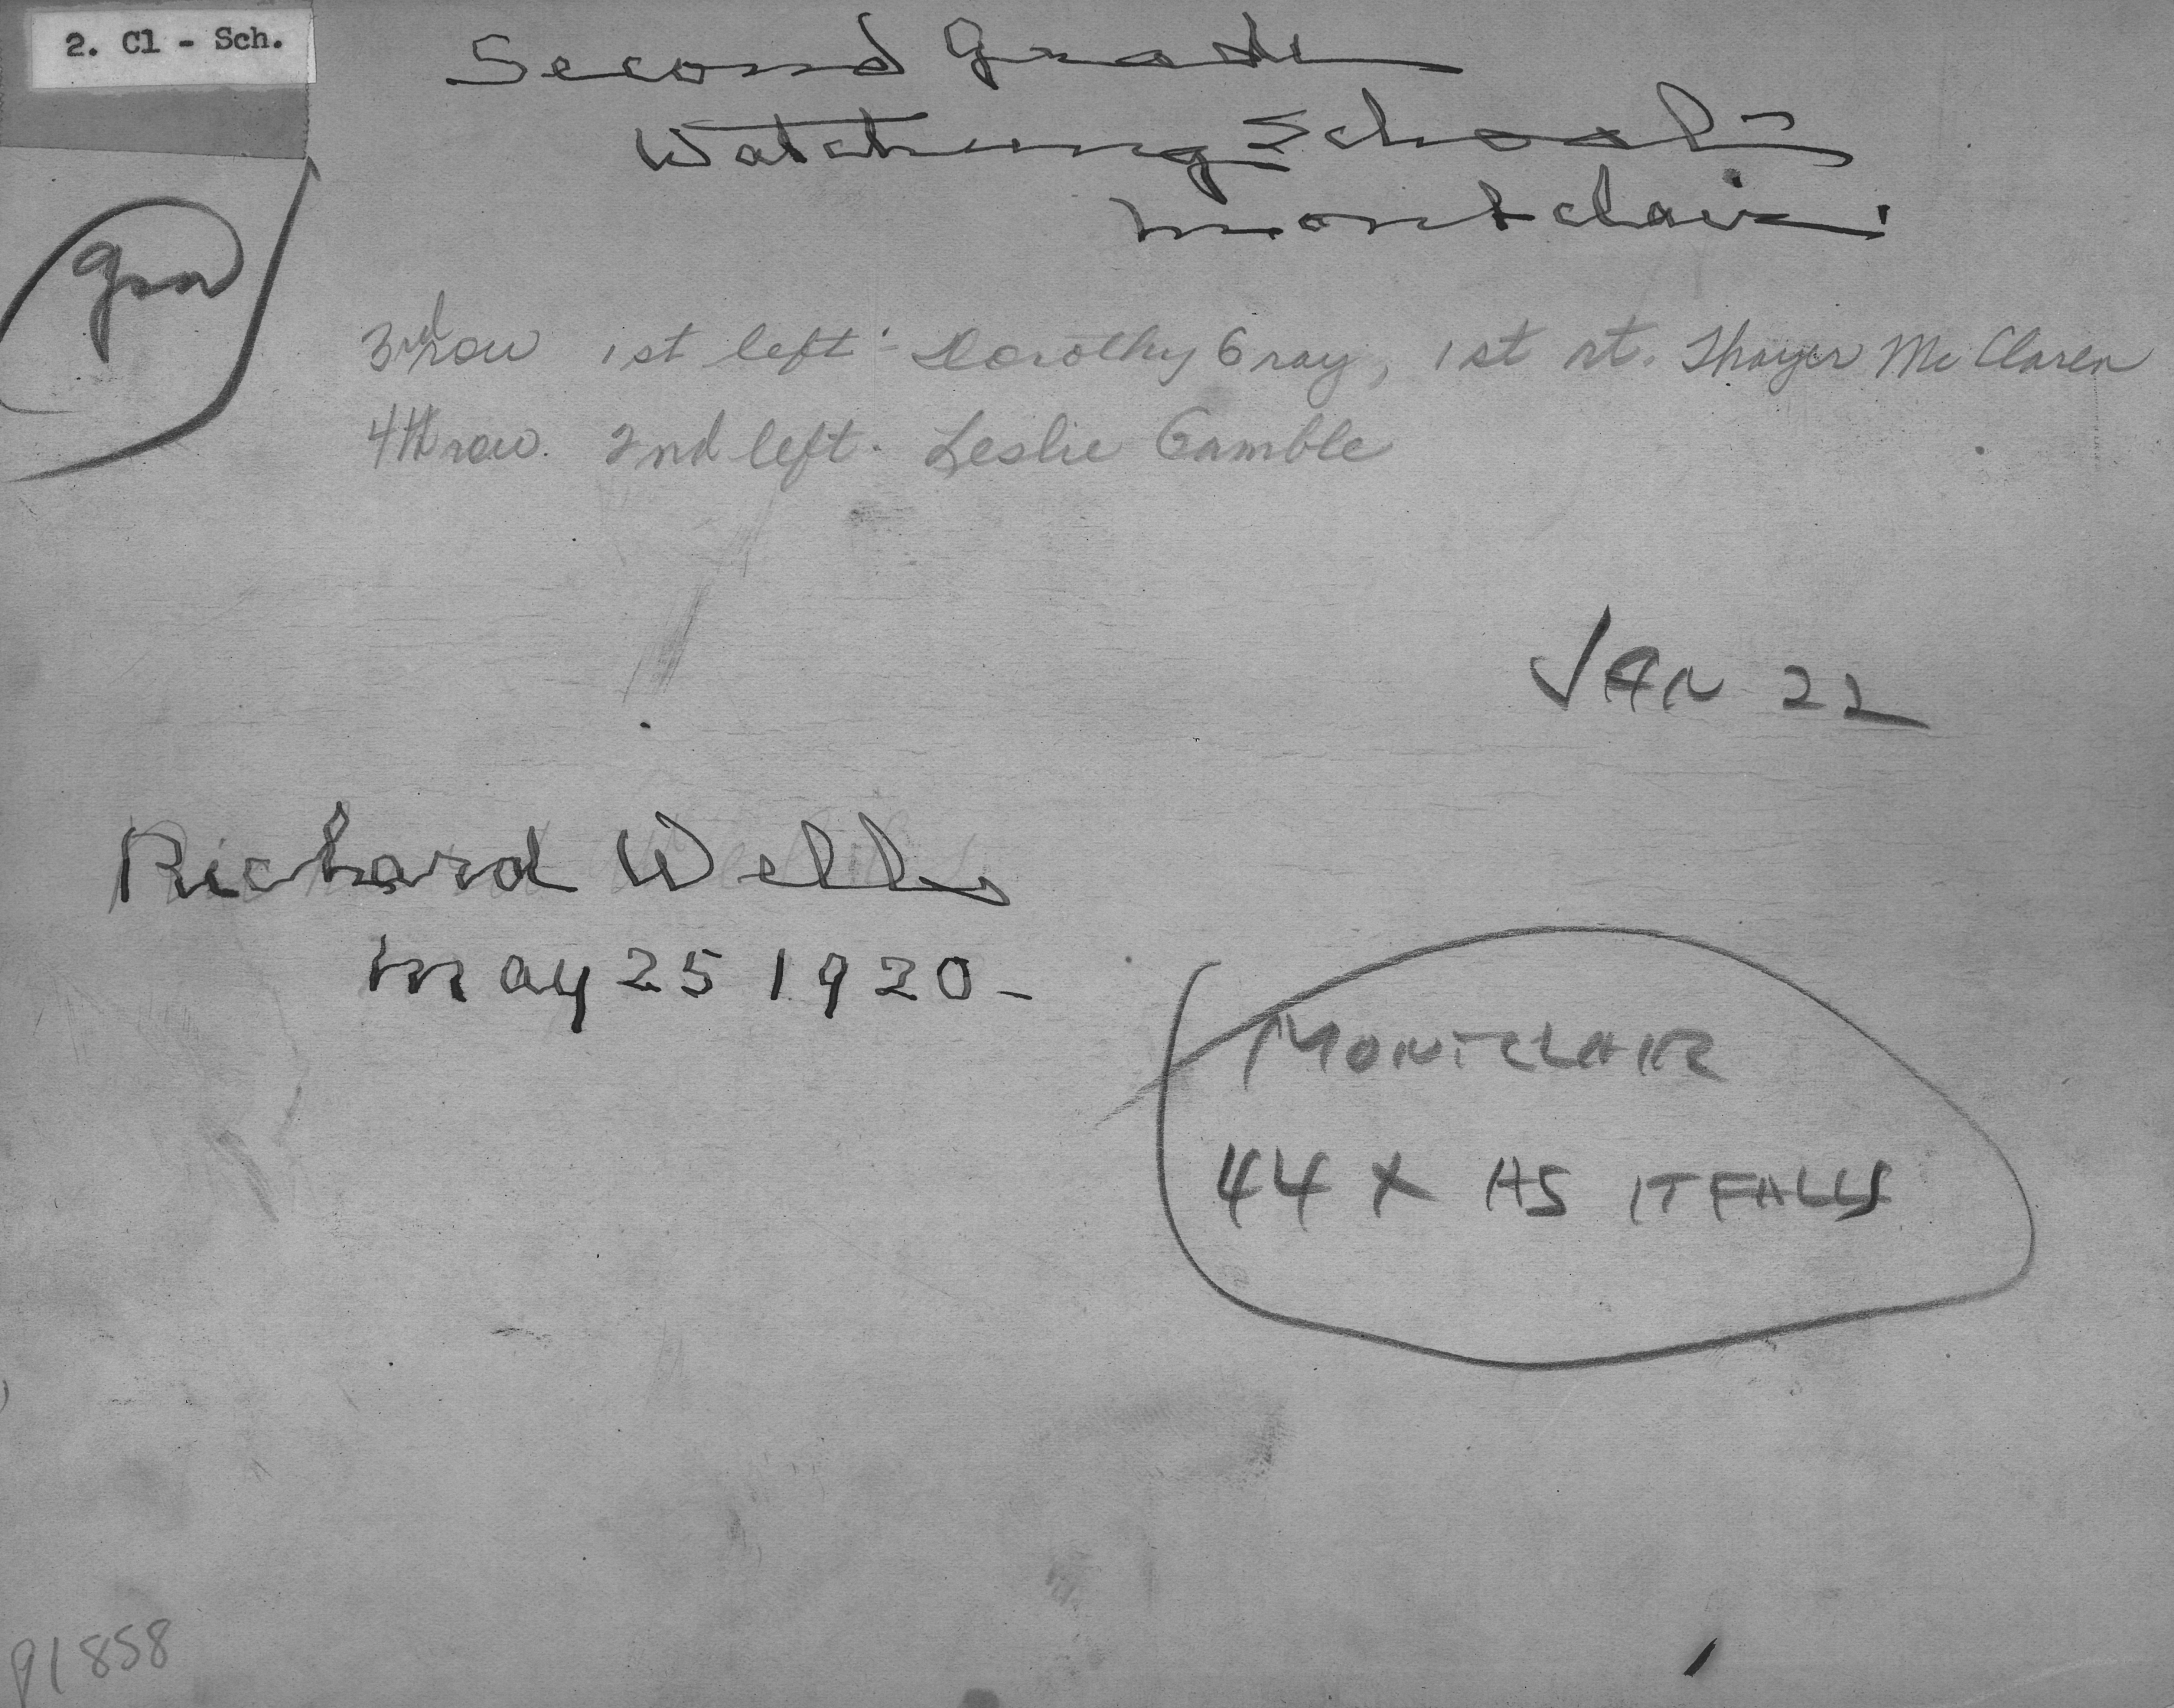 2. Cl - Sch.
Second Grade
Watchung School -
Montclair.
3rd row 1st left - Dorothy Gray, 1st rt. Thayer McClaren
4th row. 2nd left. Leslie Gamble
JAN 22
Richard Wells
May 25 1920 -
MONTCLAIR
44 X AS IT FALLS
P1858